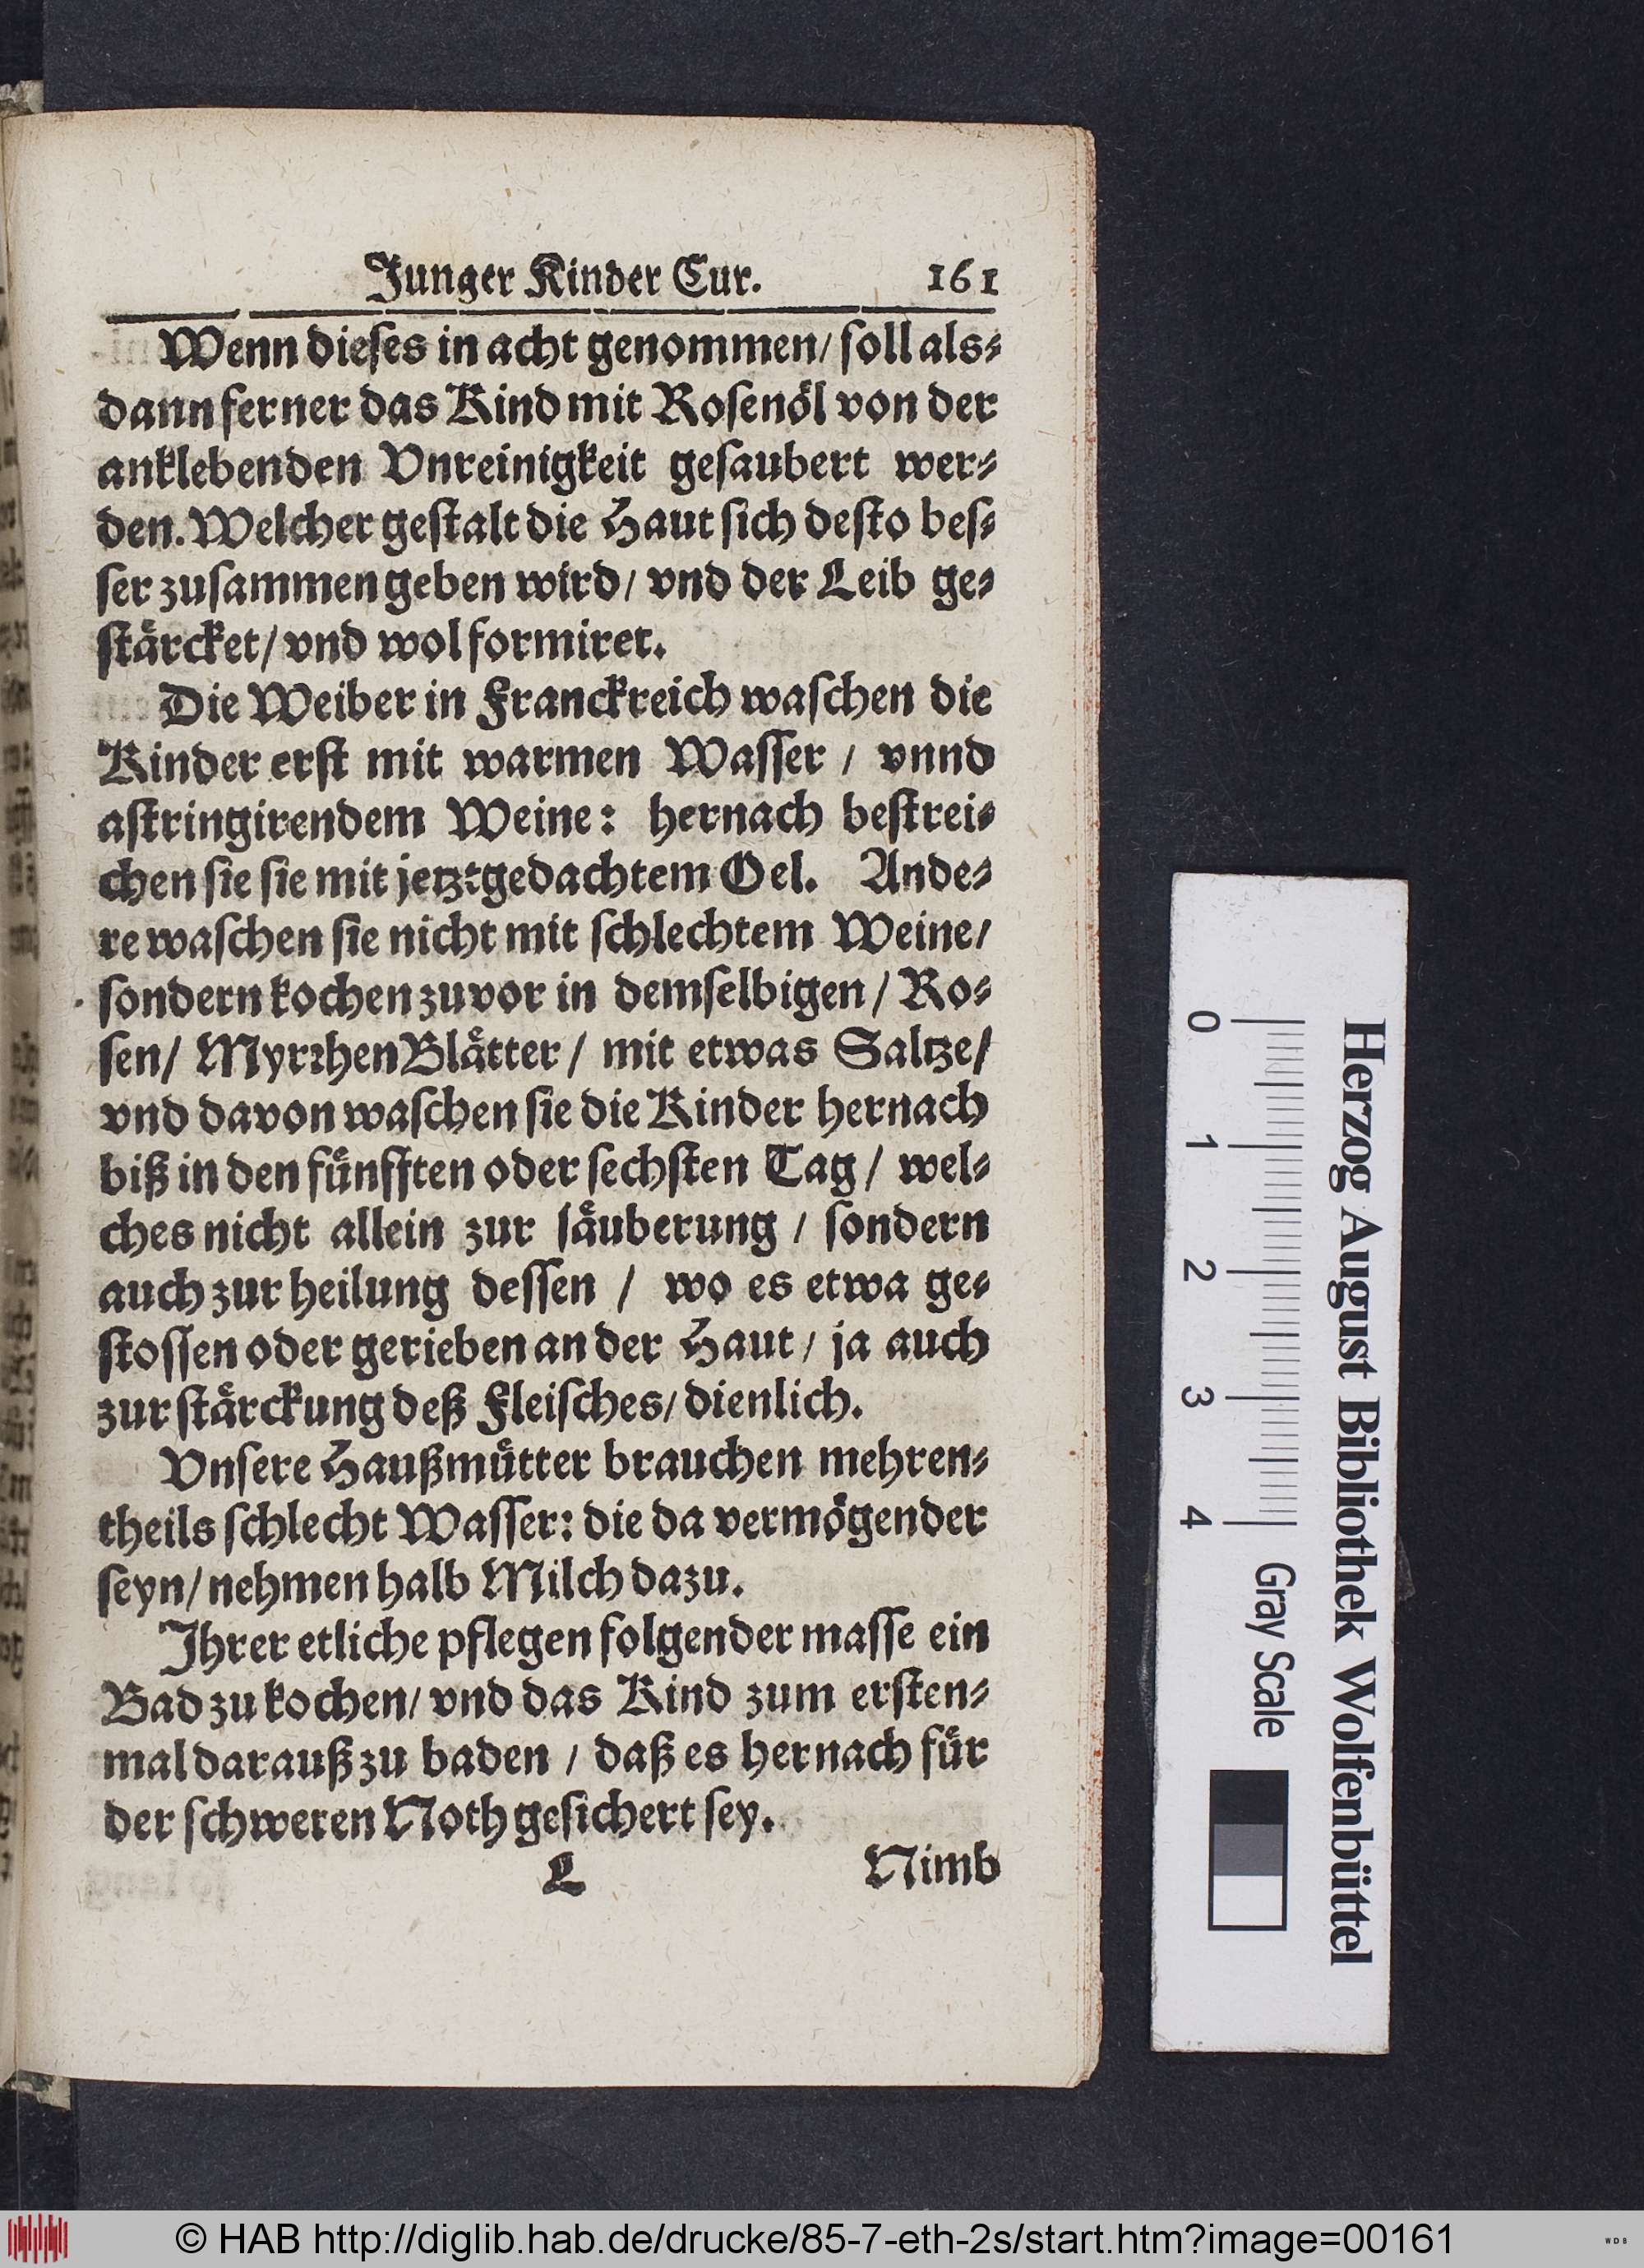 Junger Kinder Cur. 161
Wenn dieſes in acht genommen/ ſoll als⸗
dann ferner das Kind mit Roſenoͤl von der
anklebenden Vnreinigkeit geſaubert wer⸗
den. Welcher geſtalt die Haut ſich deſto beſ⸗
ſer zuſammen geben wird/ vnd der Leib ge⸗
ſtaͤrcket/ vnd wol formiret.
Die Weiber in Franckreich waſchen die
Kinder erſt mit warmen Waſſer / vnnd
aſtringirendem Weine: hernach beſtrei⸗
chen ſie ſie mit jetztgedachtem Oel. Ande⸗
re waſchen ſie nicht mit ſchlechtem Weine/
ſondern kochen zuvor in demſelbigen / Ro⸗
ſen/ MyrꝛhenBlaͤtter / mit etwas Saltze/
vnd davon waſchen ſie die Kinder hernach
biß in den fuͤnfften oder ſechſten Tag / wel⸗
ches nicht allein zur ſaͤuberung / ſondern
auch zur heilung deſſen / wo es etwa ge⸗
ſtoſſen oder gerieben an der Haut / ja auch
zur ſtaͤrckung deß Fleiſches/ dienlich.
Vnſere Haußmuͤtter brauchen mehren⸗
theils ſchlecht Waſſer: die da vermoͤgender
ſeyn/ nehmen halb Milch dazu.
Jhrer etliche pflegen folgender maſſe ein
Bad zu kochen/ vnd das Kind zum erſten⸗
mal darauß zu baden / daß es hernach fuͤr
der ſchweren Noth geſichert ſey.
L Nimb
0 1 2 3 4 Gray Scale
Herzog August Bibliothek Wolfenbüttel
© HAB http://diglib.hab.de/drucke/85-7-eth-2s/start.htm?image=00161
WDB